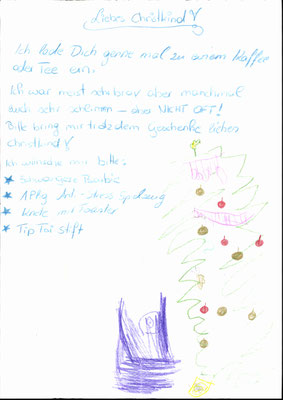 Liebes Christkind
Ich lade Dich gerne mal zu einem Kaffee
oder Tee ein.
Ich war meist schon brav aber manchmal
auch sehr schlimm – aber NICHT OFT!
Bitte bring mir trotzdem Geschenke liebes
Christkind
Ich wünsche mir bitte:
Schwangere Barbie
Spielzeug
mit Toaster
TipToi Stift